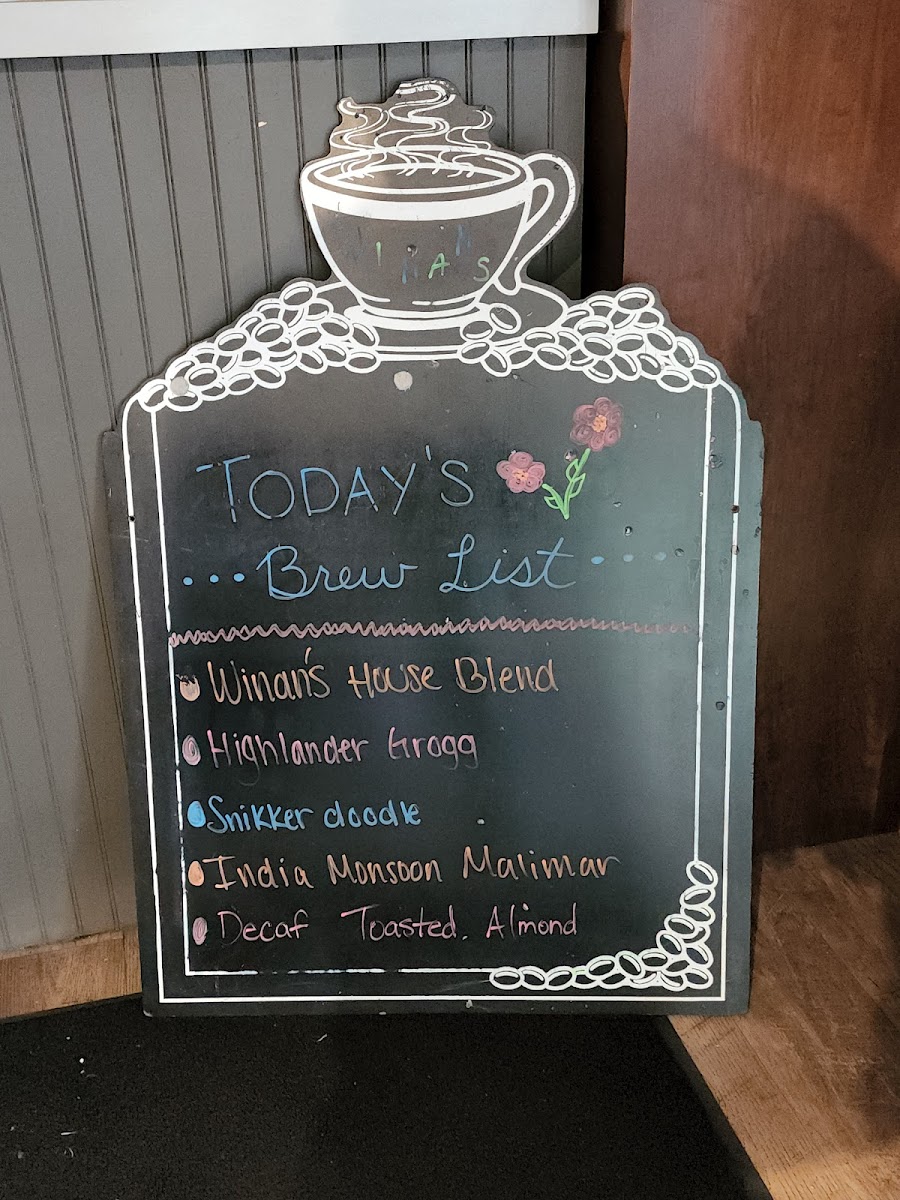 TODAY'S
Brew List
Winan's House Blend
Highlander Grogg
Snikker doodle
India Monsoon Malimar
Decaf Toasted Almond